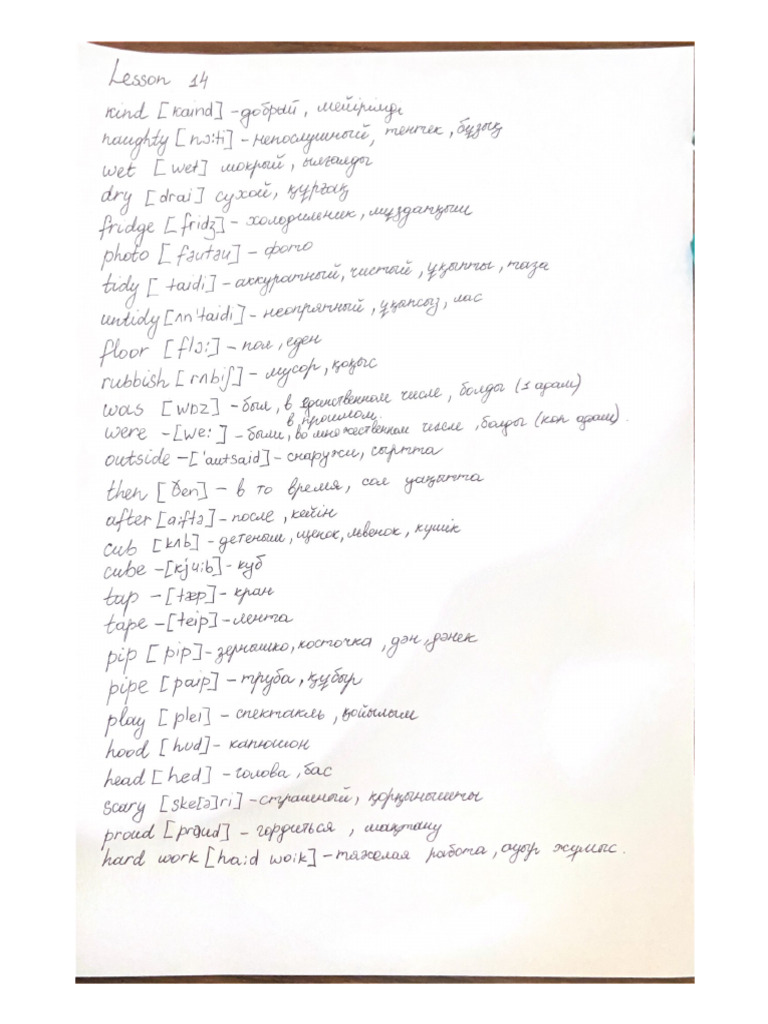 Lesson 14
kind [kaind] - добрый, мейірімді
naughty [nɔ:ti] - непослушный, тентек, бұзық
wet [wet] мокрый, ылғалды
dry [drai] сухой, құрғақ
fridge [fridʒ] - холодильник, мұздатқыш
photo [fəutəu] - фото
tidy [taidi] - аккуратный, чистый, ұқыпты, таза
untidy [ʌn'taidi] - неопрятный, ұқыпсыз, лас
floor [flɔ:] - пол, еден
rubbish [rʌbiʃ] - мусор, қоқыс
was [wɒz] - был, в единственном числе, болды (1 адам)
в прошлом.
were - [we:] - были, во множественном числе, болды (көп адам).
outside - ['autsaid] - снаружи, сыртта
then [ðen] - в то время, сол уақытта
after [a:ftə] - после, кейін
cub [kʌb] - детеныш, щенок, львенок, күшік
cube - [kju:b] - куб
tap - [tæp] - кран
tape - [teip] - лента
pip [pip] - зернышко, косточка, дән, дәнек
pipe [paip] - труба, құбыр
play [plei] - спектакль, қойылым
hood [hud] - капюшон
head [hed] - голова, бас
scary [ske[ə]ri] - страшный, қорқынышты
proud [praud] - гордиться, мақтану
hard work [ha:d wo:k] - тяжелая работа, ауыр жұмыс.